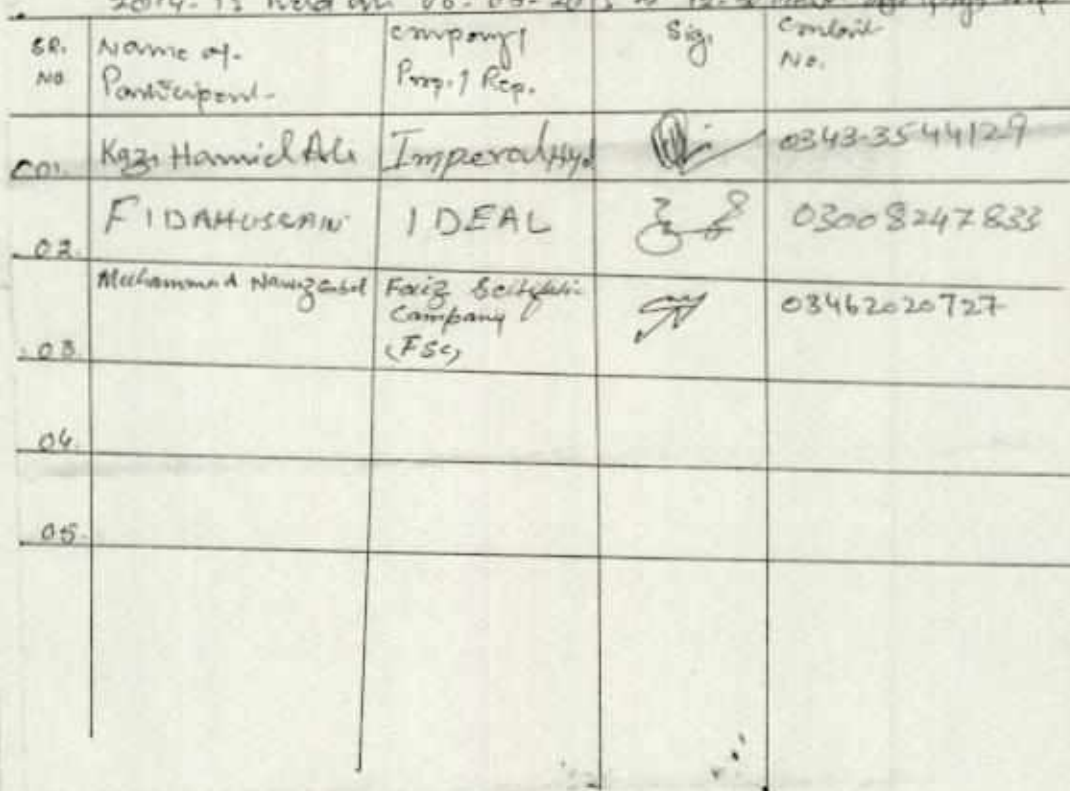 2014-15 held on 06-05-2015
SR. No Name of Participant Company / Prop. / Rep. Sig. Contact No.
01. Kazi Hamid Ali Imperal Hyd 0343-3544129
02. FIDAHUSSAIN IDEAL 03008247833
03. Muhammad Faiz Scitific Company (FSC) 03462020727
04.
05.